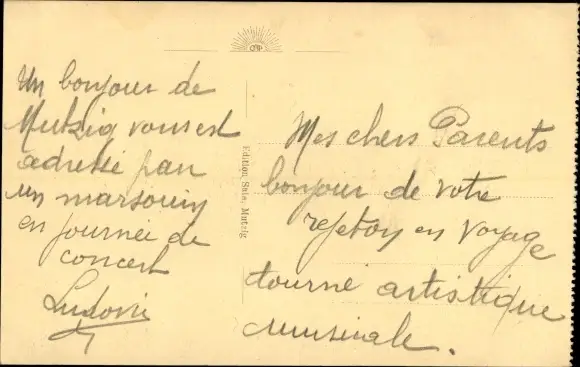 Un bonjour de
Mutzig vous est
adressé par
un marsouin
en journée de
concert
Ludovic
Edition Sala, Mutzig
Mes chers Parents
bonjour de votre
rejeton en voyage
tourné artistique
musicale.